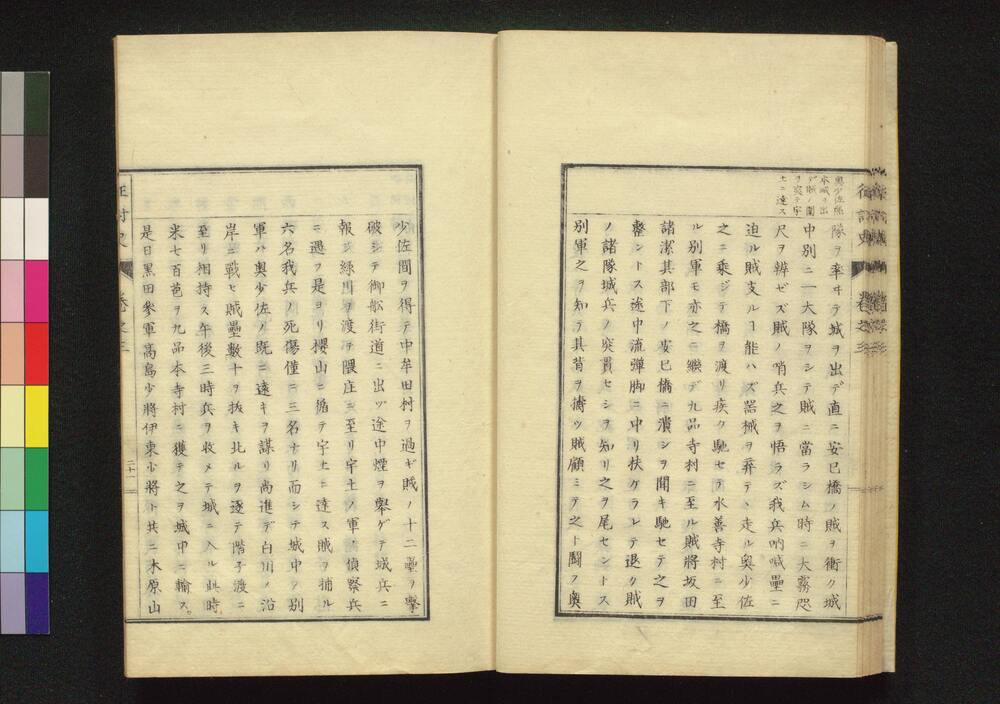 奥少佐縣
隊ヲ率ヰテ城ヲ出デ直ニ安巳橋ノ賊ヲ衝ク城
中別ニ一大隊ヲシテ賊ニ當ラシム時ニ大霧咫
尺ヲ辨ゼズ賊ノ哨兵之ヲ悟ラズ我兵吶喊壘ニ
迫ル賊支ルヿ能ハズ器械ヲ弃テヽ走ル奥少佐
之ニ乘ジテ橋ヲ渡リ疾ク馳セテ水善寺村ニ至
ル別軍モ亦之ニ繼デ九品寺村ニ至ル賊將坂田
諸潔其部下ノ安巳橋ニ潰シヲ聞キ馳セテ之ヲ
整ントス途中流彈脚ニ中リ扶ケラレテ退ク賊
ノ諸隊城兵ノ突貫セシヲ知リ之ヲ尾セントス
別軍之ヲ知テ其背ヲ擣ツ賊顧ミテ之ト鬪フ奥
少佐間ヲ得テ中牟田村ヲ過ギ賊ノ十二壘ヲ擊
破シテ御船街道ニ出ヅ途中煙ヲ擧ゲテ城兵ニ
報ジ綠川ヲ渡テ隈庄ニ至リ宇土ノ軍ノ偵察兵
ニ遇フ是ヨリ櫻山ニ循テ宇土ニ達ス賊ヲ捕ル
六名我兵ノ死傷僅ニ三名ナリ而シテ城中ノ別
軍ハ奥少佐ノ既ニ遠キヲ謀リ尚進デ白川ノ沿
岸ニ戰セ賊壘數十ヲ抜キ北ルヲ逐テ階子渡ニ
至リ相持ス午後三時兵ヲ收メテ城ニ入ル此時
米七百苞ヲ九品本寺村ニ獲テ之ヲ城中ニ輸ス。
是日黒田參軍高島少將伊東少將ト共ニ木原山
二十一